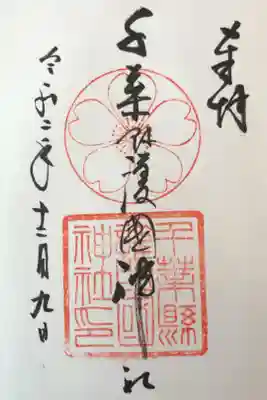 奉拝
千葉県護國神社
千葉縣護國神社印
令和二年十二月九日